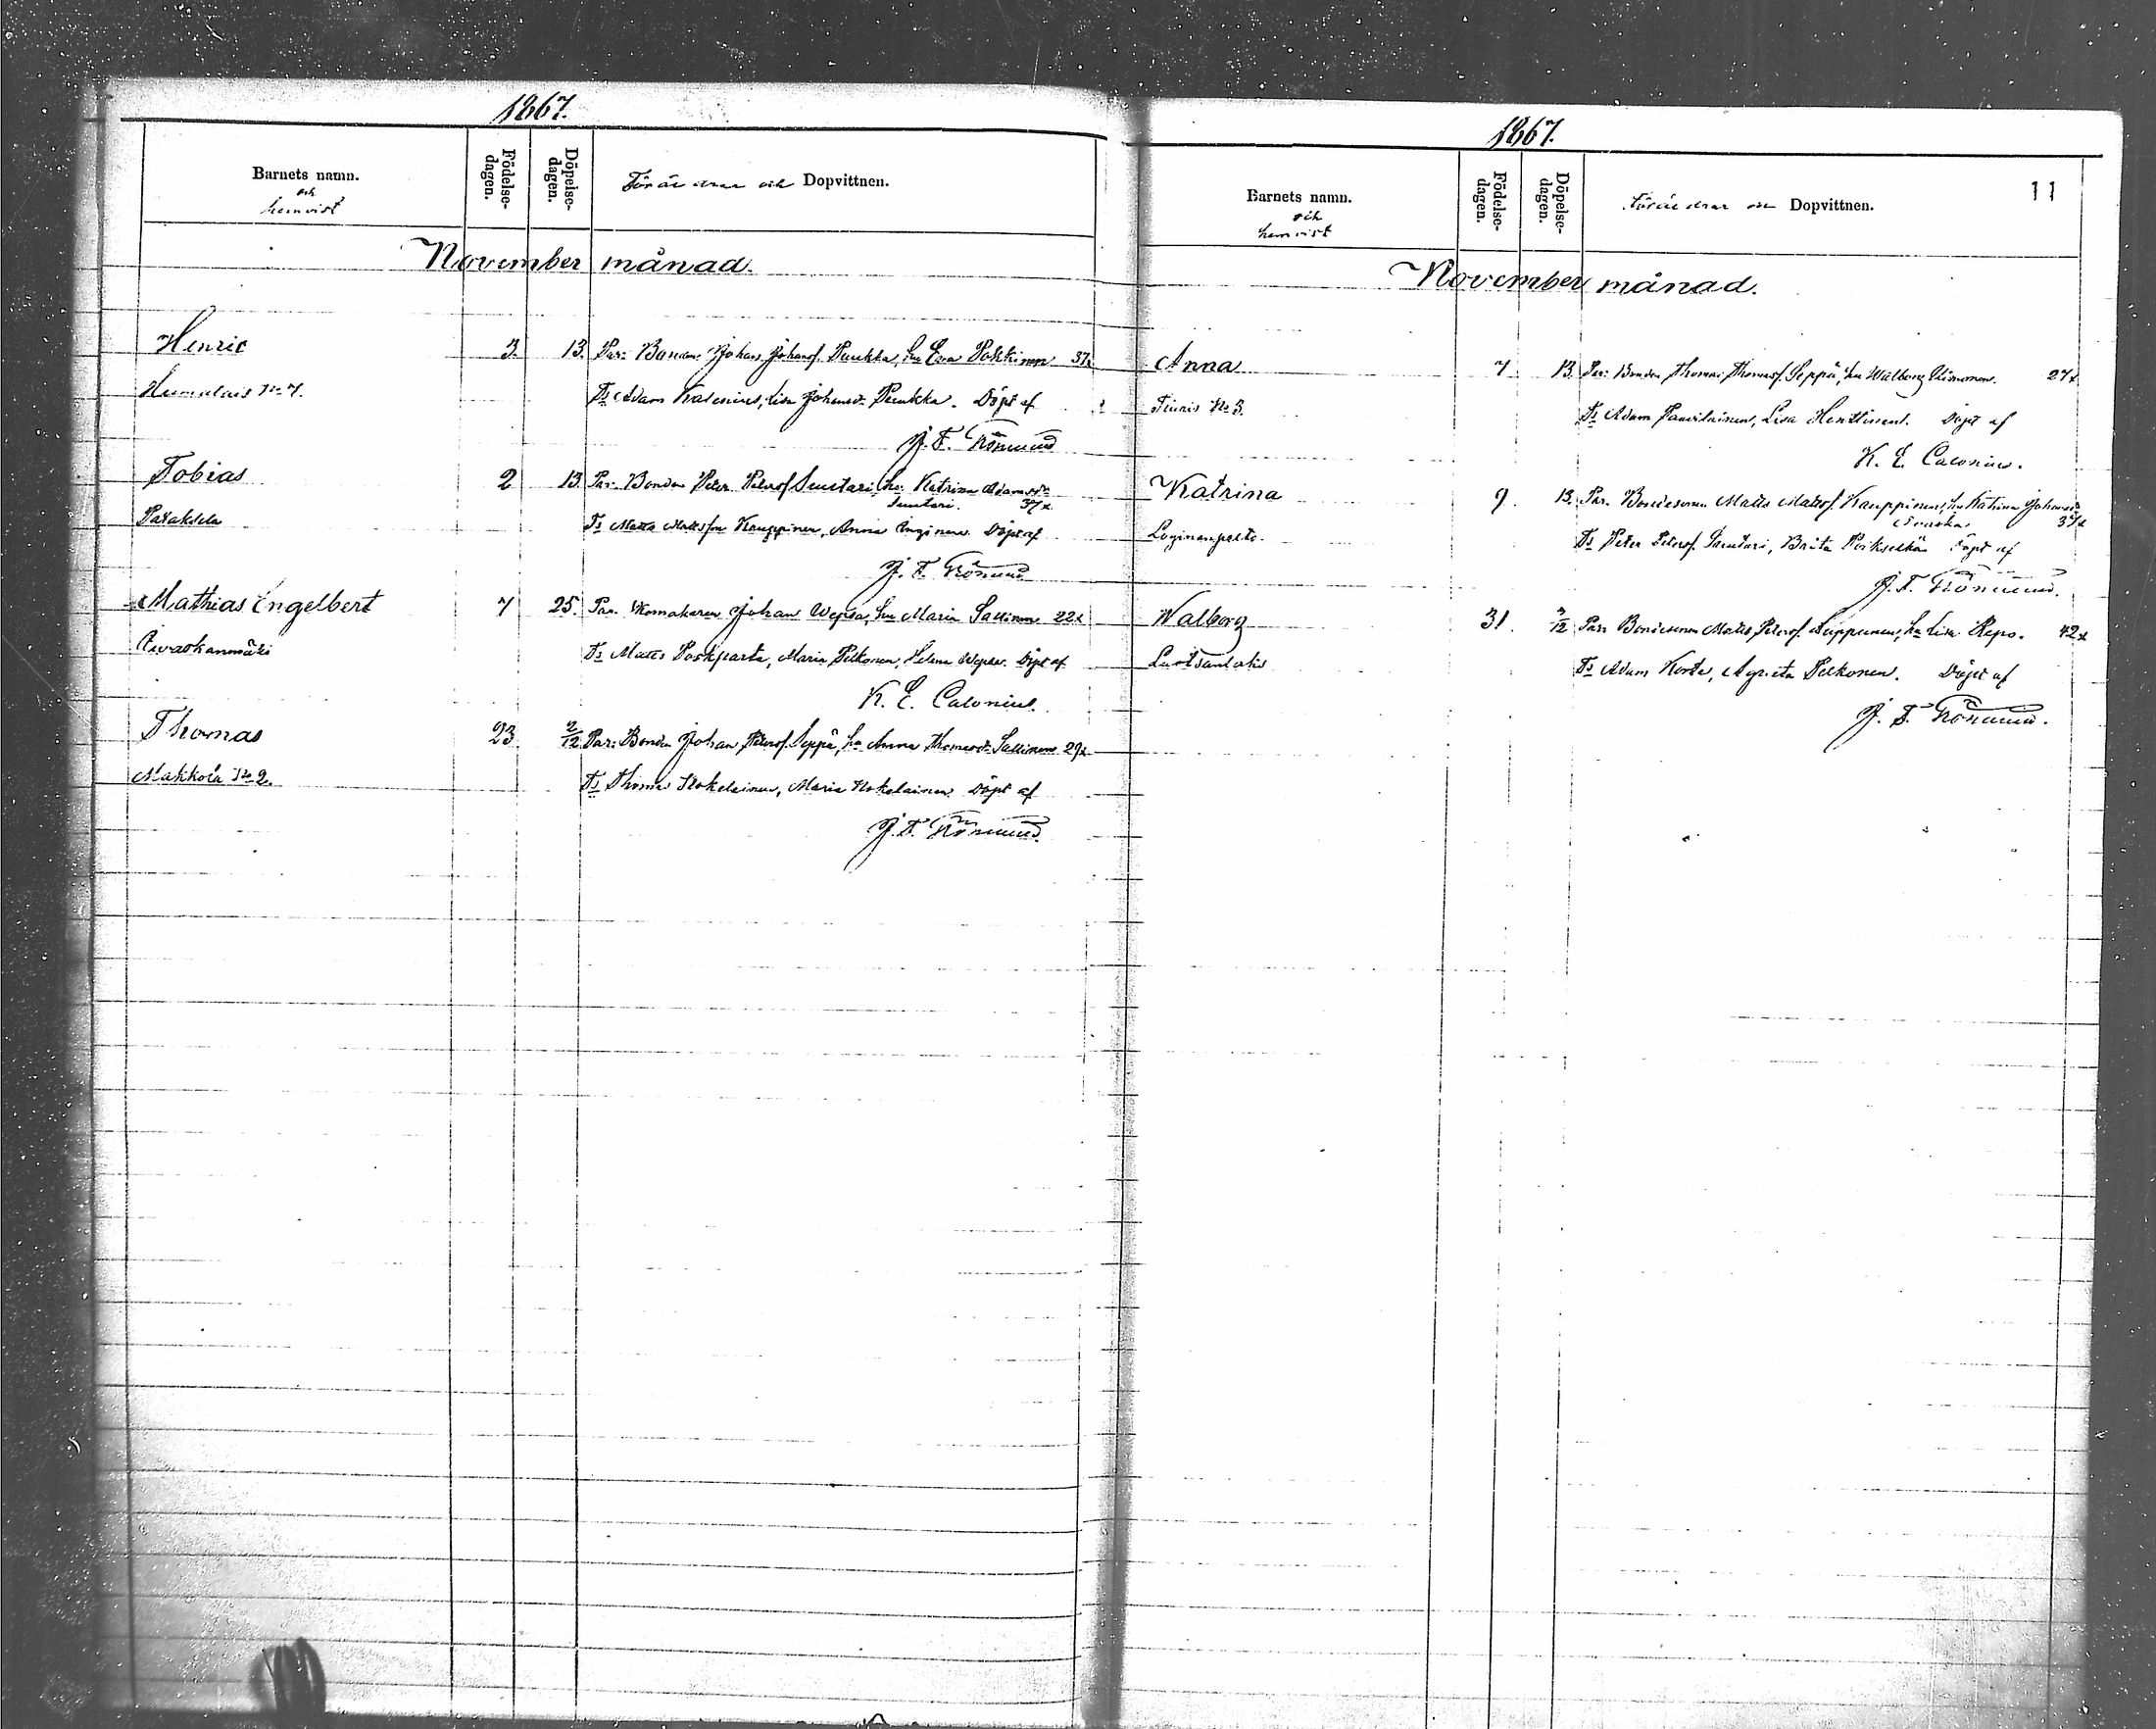 1867.
Barnets namn.
och
hemvist
Födelse-
dagen.
Döpelse-
dagen.
Föräldrar och Dopvittnen.
November månad.
Henric 3. 13. Par: Bonden Johan Johansf. Puukka, hu Eva Pokkinen 37x
No 7. Ts Adam Kalenius, Lisa Johansd. Puukka. Döpt af
J. F. Rönnlund
Tobias 2 13. Par: Bonden Peter Petersf Suutari, hu: Katrina Adamsdr
Suutari. 37x
Ts Matts Mattsson Kauppinen, Anna Döpt af
J. F. Rönnlund
Mathias Engelbert 7 25. Par. Skomakaren Johan Wepsä, hu Maria Sallinen 22x
Ts Matts Poskiparta, Maria Pelkonen, Helena Wepsä. Döpt af
K. E. Calonius.
Thomas 23. 2/12 Par: Bonden Johan Petersf. Seppä, hu Anna Thomasdr Sallinen 29x
Makkola No 2. Ts Thomas Kokelainen, Maria Kokelainen Döpt af
J. F. Rönnlund.
1867.
11
Barnets namn.
och
hemvist
Födelse-
dagen.
Döpelse-
dagen.
Föräldrar och Dopvittnen.
November månad.
Anna 7 13. Par: Bonden Thomas Thomasf. Seppä, hu Walborg 27x
Tiuris No 3. Ts Adam Paavilainen, Lisa Henttinen. Döpt af
K. E. Calonius.
Katrina 9. 13. Par. Bondesonen Matts Mattsf. Kauppinen, hu Katrina Johansdr
37x
Loginanpelto. Ts Peter Petersf. Suutari, Brita Poikselkä Döpt af
J. F. Rönnlund.
Walborg 31. 2/12 Par: Bondesonen Matts Petersf. Seppinen, hu Lisa Repo. 42x
Ts Adam Korte, Agneta Pelkonen. Döpt af
J. F. Rönnlund.